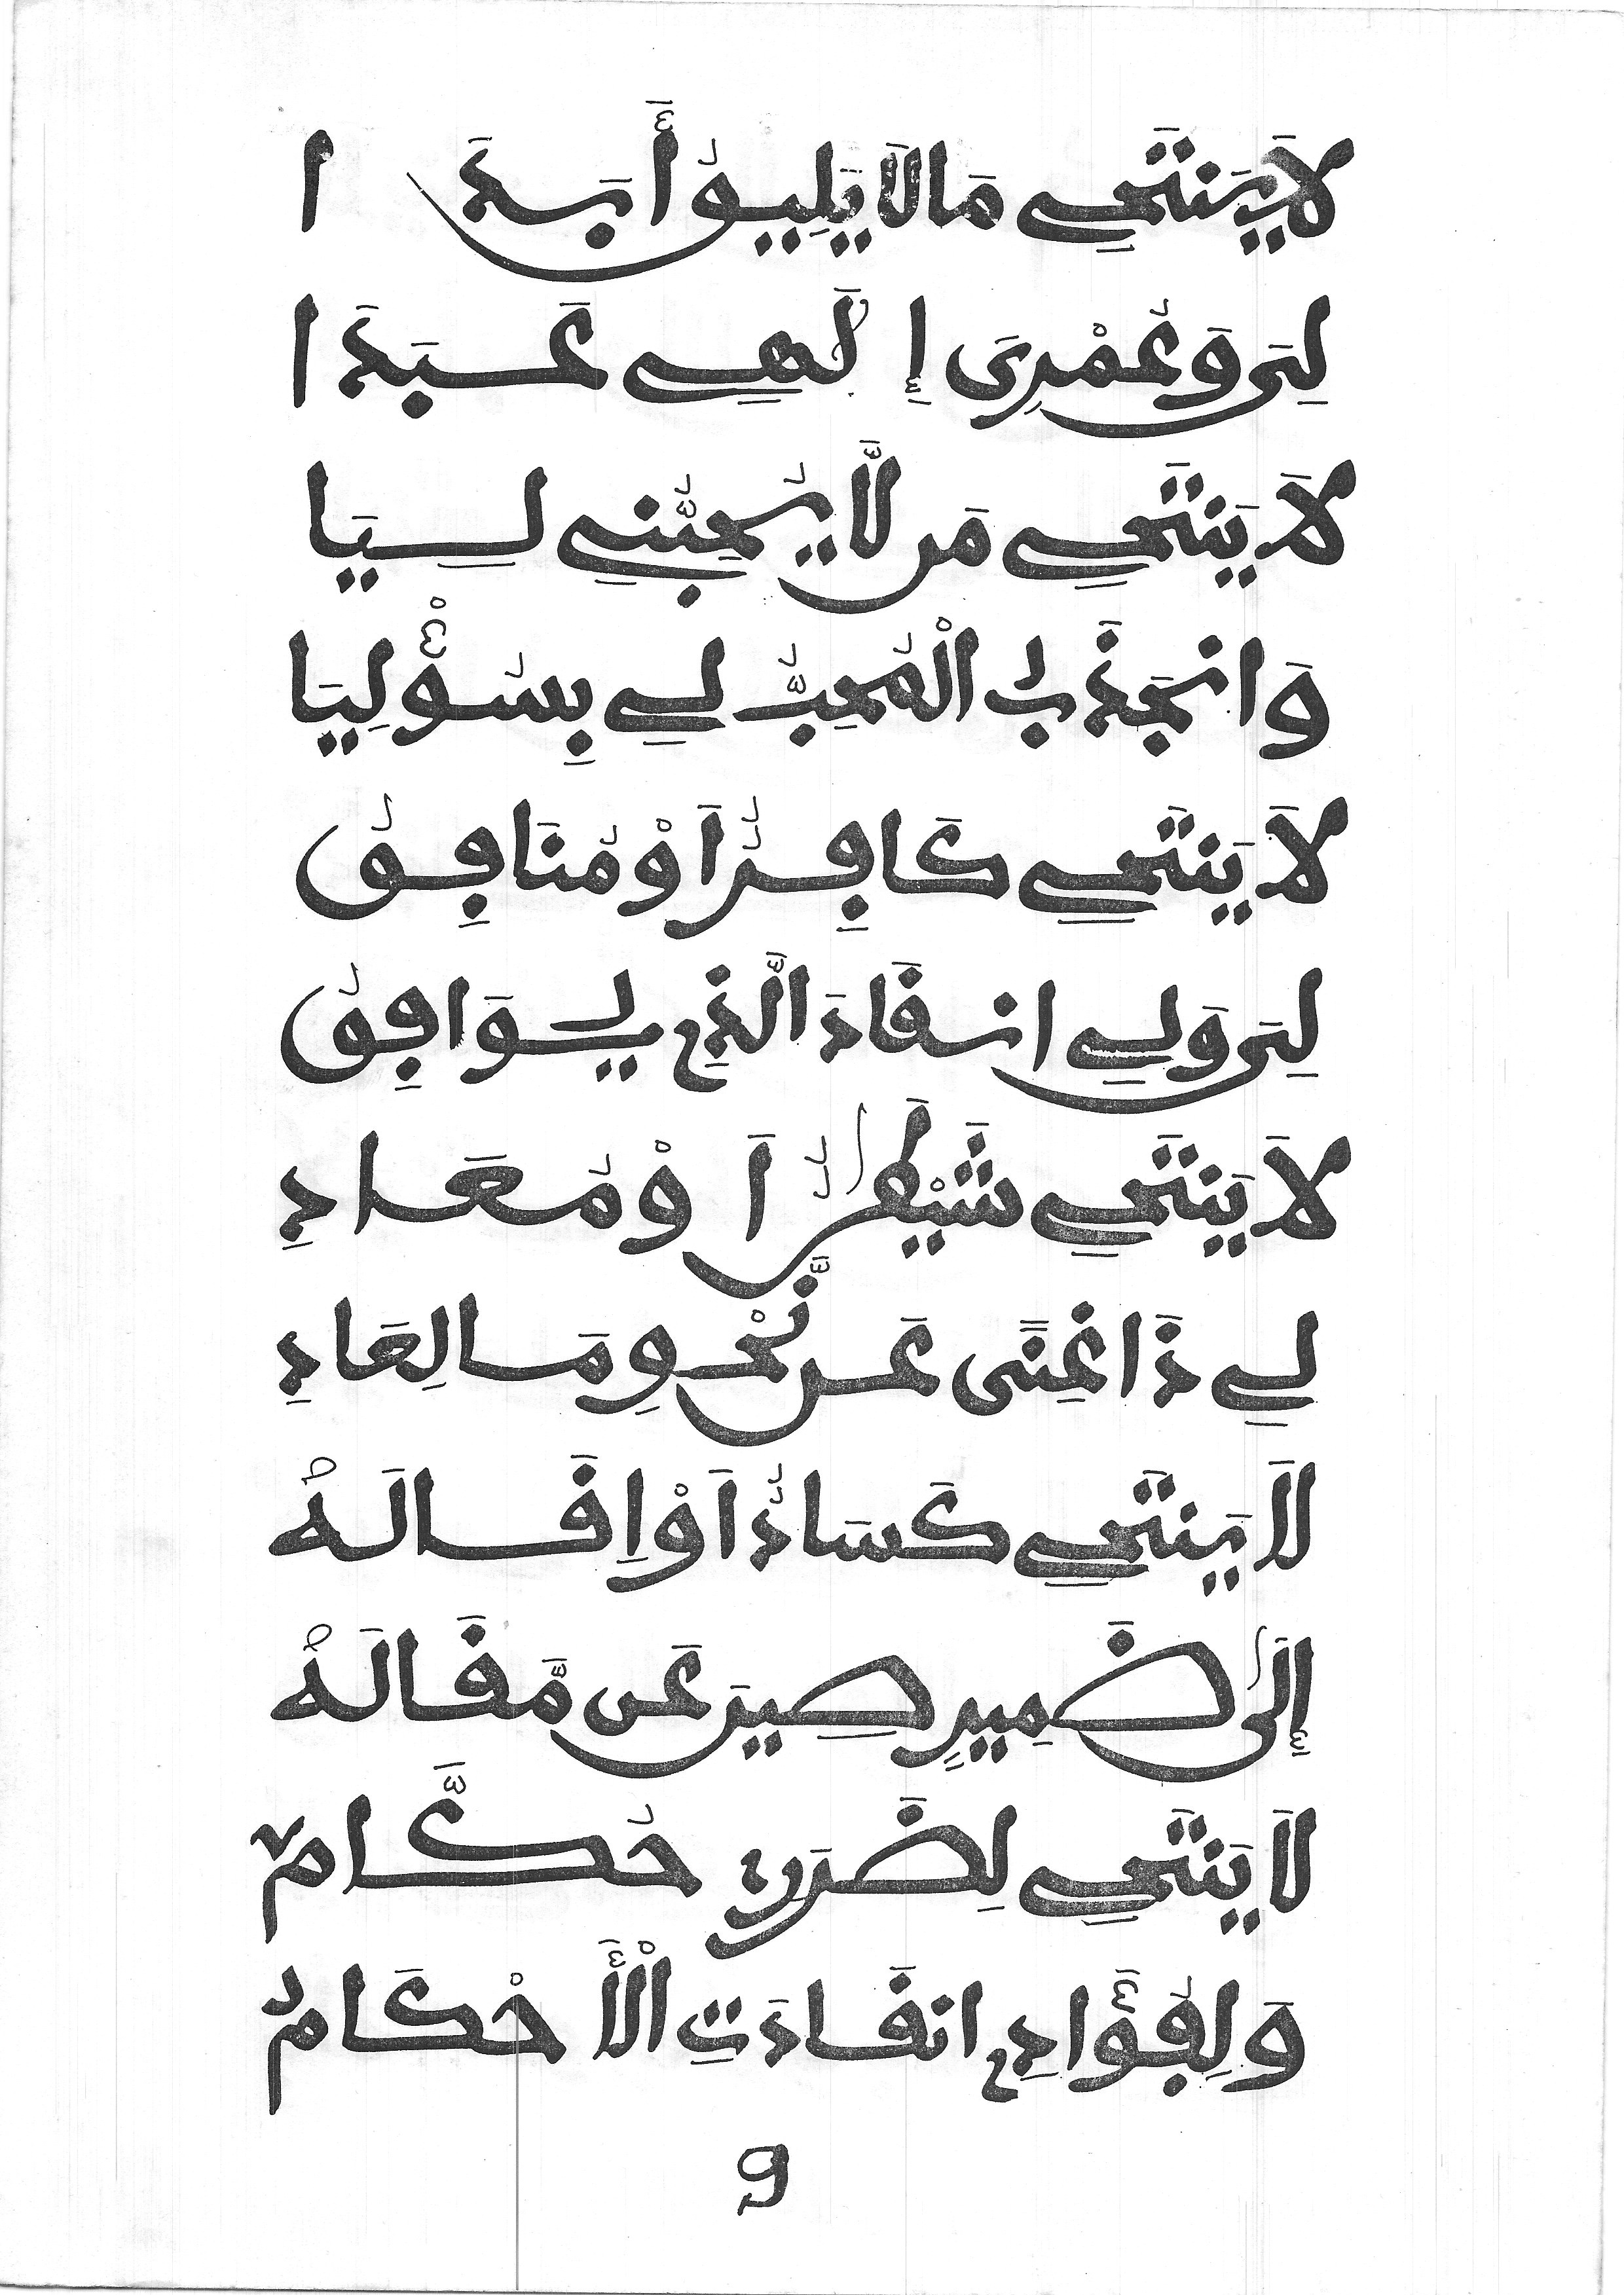 لَا يَنتَحِى مَا لَا يَلِيقُ أَبَدَا
لِىَ وَعُمْرِى إِلَٰهِى عَبَدَا
لَا يَنتَحِى مَن لَّا يُحِبُّنِى لِيَا
وَانجَذَبَ الْمُحِبُّ لِى بِسُؤْلِيَا
لَا يَنتَحِى كَافِرٌ اَوْ مُنَافِقُ
لِىَ وَلِى انقَادَ الَّذِى يُوَافِقُ
لَا يَنتَحِى شَيْطَٰنٌ اَوْ مُعَادِ
لِى ذَا غِنًى عَن نَّحْوِ مَا لِعَادِ
لَا يَنتَحِى كَسَادٌ اَوْ اِقَالَهْ
إِلَىٰ ضَمِيرِ صِينَ عَن مَّقَالَهْ
لَا يَنتَحِى لِضَرَرِى حُكَّامُ
وَلِفُؤَادِى انقَادَتِ الْأَحْكَامُ
9